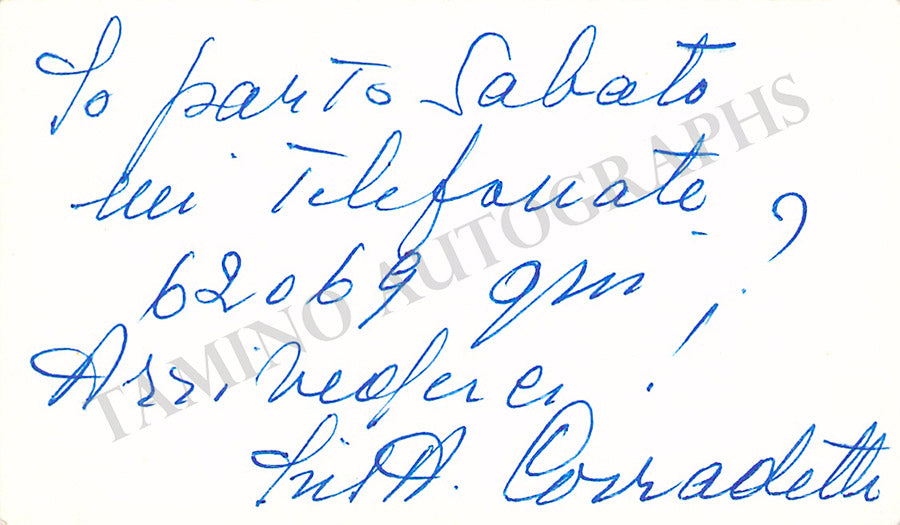 Io parto Sabato
mi Telefonate
62069 qui ?
Arrivederci !
A. Corradetti
TAMINO AUTOGRAPHS